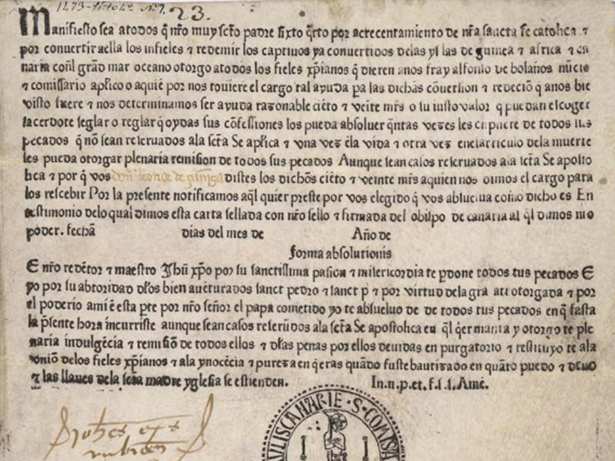 1473 Octobre N.1. 23.
Manifiesto sea atodos q̃ nr̃o muy sctõ padre sixto q̃rto por acrecentamiento de nr̃a sancta fe catolica ⁊
por convertir aella los infieles ⁊ redemir los captiuos ya conuertidos de las yslas de guinea ⁊ africa ⁊ ca
naria con l grãd mar oceano otorgo atodos los fieles xp̃ianos q̃ dieren anos fray alfonso de bolaños nũcio
⁊ comissario aplico aquiẽ por nos touiere el cargo tal ayuda pa las dichas cõuersion ⁊ redẽciõ q̃ anos bie
visto fuere ⁊ nos determinamos ser ayuda razonable ciẽto ⁊ veite mrs̃ o su iusto valor q̃ puedan escoger
sacerdote seglar o reglar q̃ oydas sus cõfessiones los pueda absoluer q̃ntas veces les cũpliere de todos sus
pecados q̃ nõ sean reseruados ala sctã Se aplica ⁊ vna vez ẽla vida ⁊ otra vez enel articulo dela muerte
les pueda otorgar plenaria remision de todos sus pecados Aunque sean casos reseruados ala sctã Se aposto
lica ⁊ por q̃ vos distes los dichos ciẽto ⁊ veinte mrs̃ aquien nos dimos el cargo para
los rescebir Por la presente notificamos aq̃l quier preste por vos elegido q̃ vos absuelua como dicho es En
testimonio delo qual dimos esta carta sellada con nr̃o sello ⁊ firmada del obispo de canaria al q̃l dimos nr̃o
poder. fecha dias del mes de Año de
forma absolutionis
E nr̃o redẽtor ⁊ maestro Jhũ xp̃o por su sanctissima pasion ⁊ misericordia te p̱done todos tus pecados E
yo por su abtoridad ⁊ dlos biẽ auẽturados sanct pedro ⁊ sanct p̱ ⁊ por virtud dela gr̃a ati otorgada ⁊ por
el poderio ami ẽ esta pte por nr̃o señor el papa cometido yo te absueluo de de todos tus pecados en q̃ fasta
la p̃sente hora incurriste aunque sean casos reserũdos ala sctã Se apostolica en q̃l q̃er manta y otorgo te ple
naria indulgẽcia ⁊ remisiõ de todos ellos ⁊ dlas penas por ellos deuidas en purgatorio ⁊ restituyo te ala
vniõ delos fieles xp̃ianos ⁊ ala ynocẽcia ⁊ pureza en q̃ eras quãdo fuste bautizado en quãto puedo ⁊ deuo
⁊ las llaues dela sctã madre yglesia se estienden. In.n.p.et.f.s.s.Amẽ.
CANARIE · S · COMISA